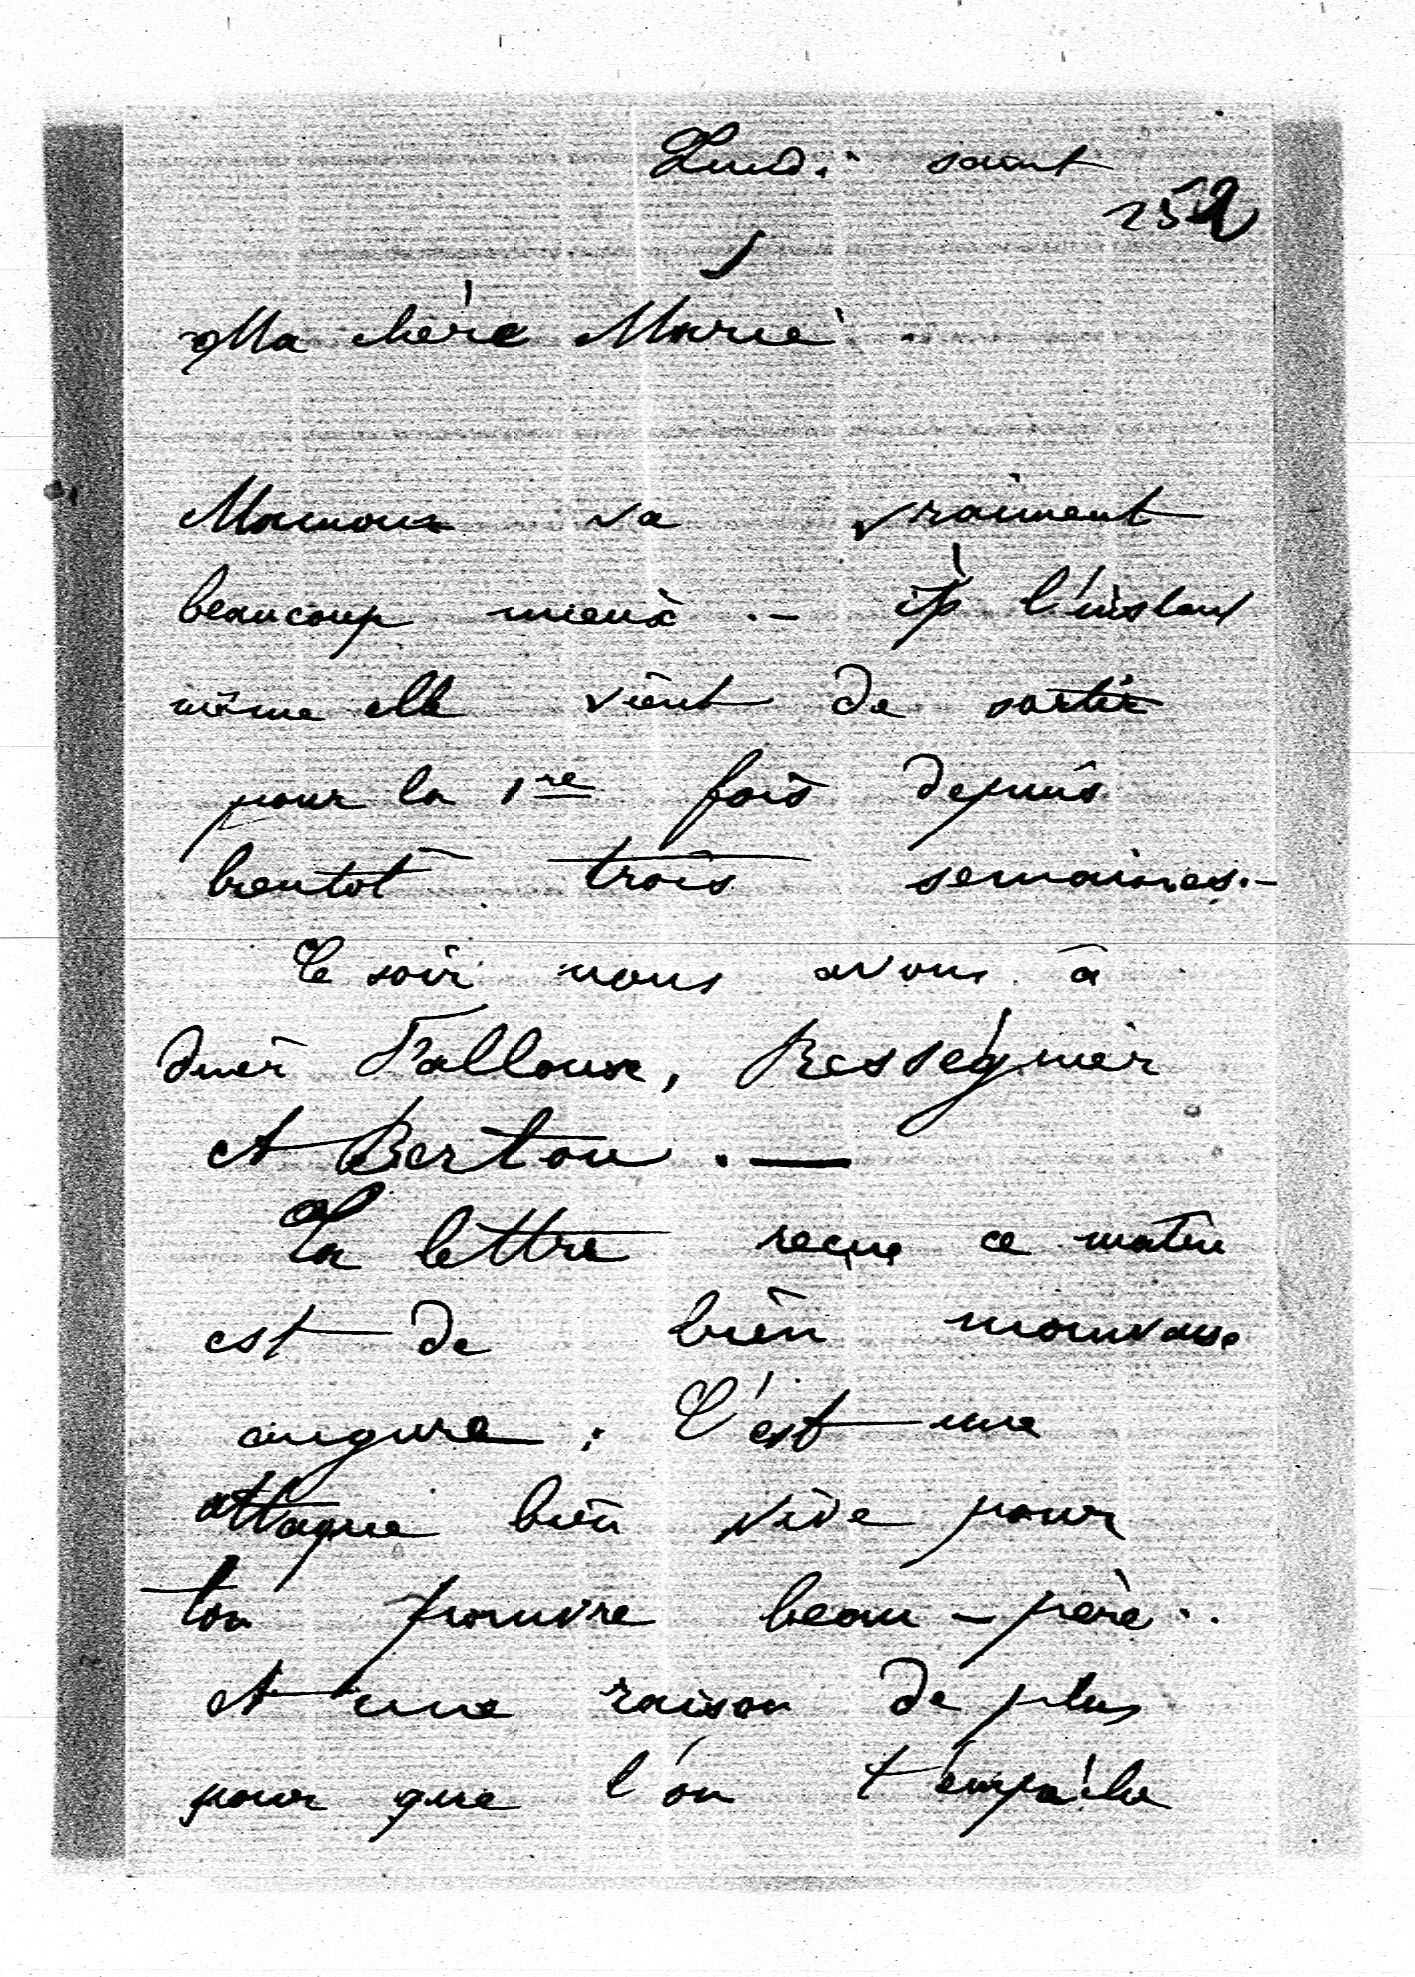 Lundi saint
252
Ma chère Marie.
Maman va vraiment
beaucoup mieux .- à l'instant
même elle vient de sortir
pour la 1re fois depuis
bientôt trois semaines.-
Ce soir nous avons à
diner Falloux, Rességuier
et Bertou. —
Ta lettre reçue ce matin
est de bien mauvais
augure : C'est une
attaque bien vive pour
ton pauvre beau-père..
et une raison de plus
pour que l'on t'empêche